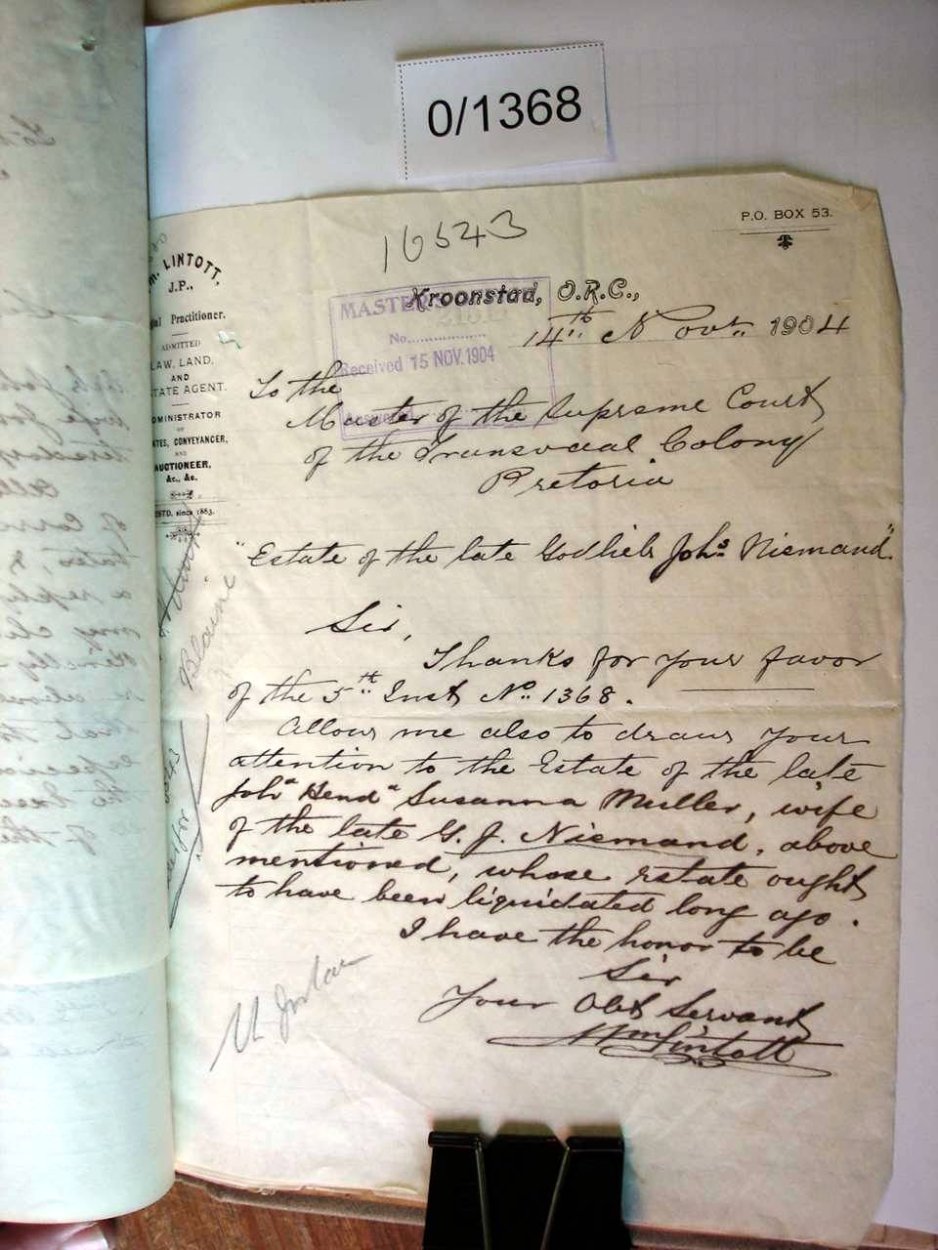 0/1368
16543
P.O. BOX 53.
LINTOTT,
J.P.,
Practitioner.
ADMITTED
LAW, LAND,
AND
TATE AGENT.
DMINISTRATOR
OF
TES, CONVEYANCER,
AND
AUCTIONEER,
&c., &c.
ESTD. since 1863.
Kroonstad, O.R.C.,
14th Novr. 1904
MASTER'S
No.
Received 15 NOV. 1904
Answered
To the
Master of the Supreme Court
of the Transvaal Colony
Pretoria
"Estate of the late Godlieb Johs Niemand"
Sir,
Thanks for your favor
of the 5th Inst No. 1368.
Allow me also to draw your
attention to the Estate of the late
Joha Henda Susanna Muller, wife
of the late G. J. Niemand, above
mentioned, whose estate ought
to have been liquidated long ago.
I have the honor to be
Sir
Your Obt Servant
Wm Lintott